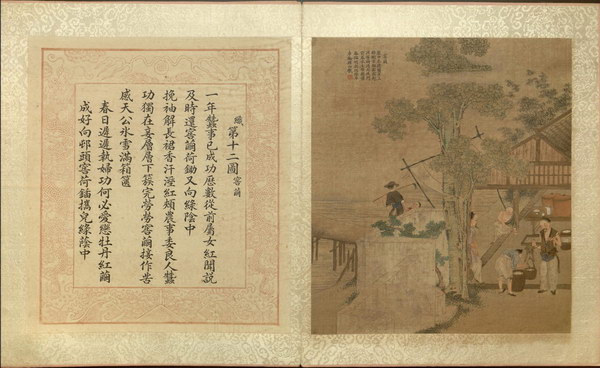 織 第十二圖 窖繭
一年蠶事已成功歷數從前屬女紅聞說
及時還窖繭荷鋤又向綠陰中
挽袖解長裙香汗溼紅頰農事委良人蠶
功獨在妾層層下簇完勞勞窖繭接作苦
感天公氷雪滿箱篋
春日遲遲執婦功何必愛戀牡丹紅繭
成好向邨頭窖荷鍤攜兒綠蔭中